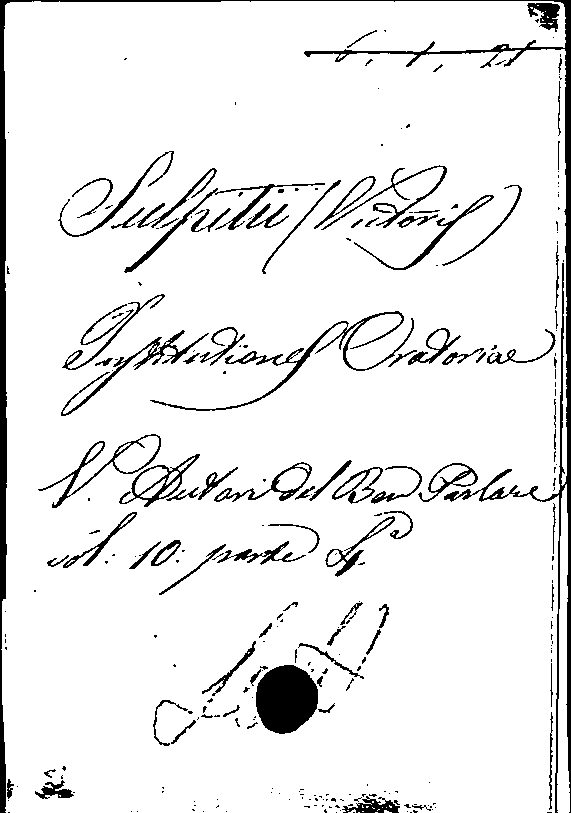 6, 1, 21
Sulpitii (Victoris)
Institutiones Oratoriae
V. Autori del Ben Parlare
vol: 10: parte 4.a